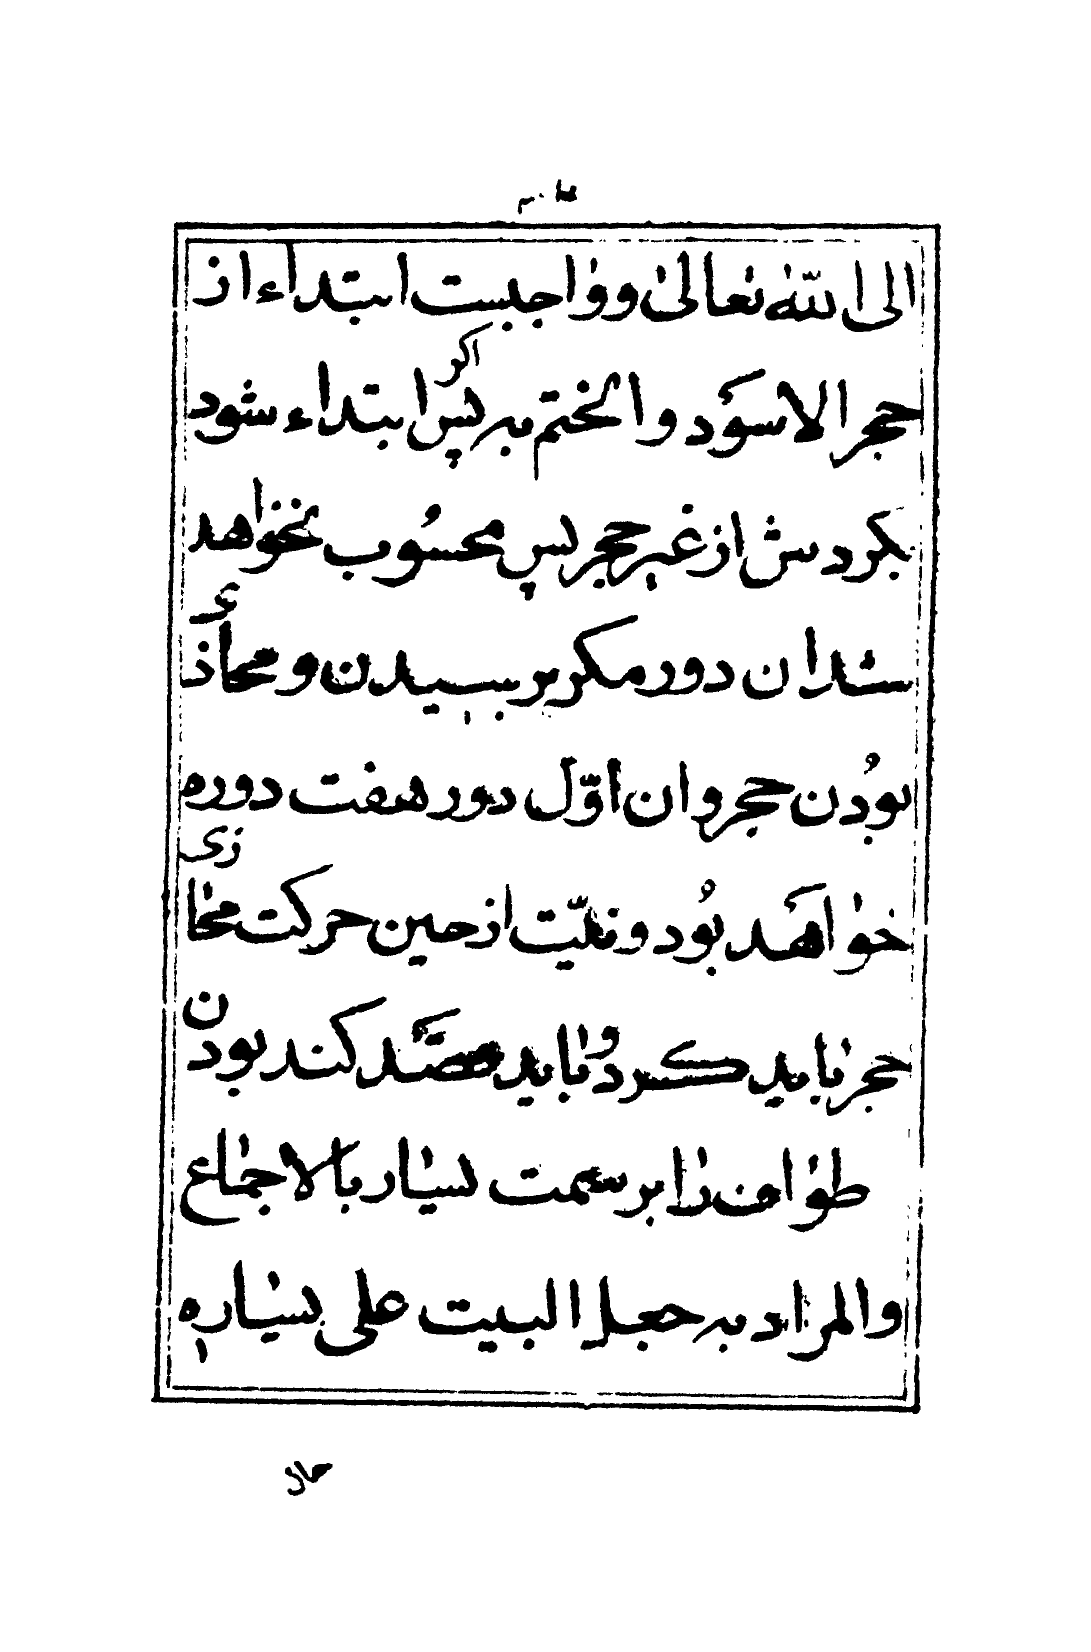 الی الله تعالی و واجبست ابتداء از
حجر الاسود و الختم به پس اکر ابتداء شود
بکردش از غیر حجر پس محسوب نخواهد
شد ان دور مکر برسیدن و محاذی
بودن حجر و ان اول دور هفت دوره
خواهد بود و نیت از حین حرکت محاذی
حجر باید کرد و باید قصد کند بودن
طواف را بر سمت یسار بالاجماع
والمراد به جعل البیت علی یساره
حال